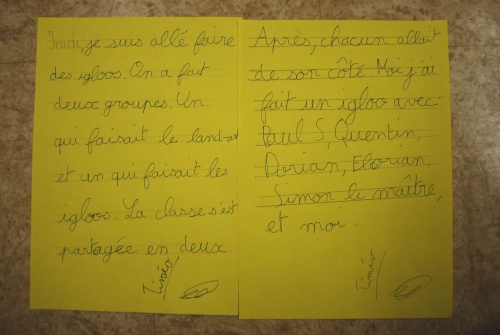 Jeudi, je suis allé faire
des igloos. On a fait
deux groupes. Un
qui faisait le land-art
et un qui faisait les
igloos. La classe s'est
partagée en deux.
Timéo
Après, chacun allait
de son côté Moi j'ai
fait un igloo avec:
Paul S, Quentin,
Dorian, Florian,
Simon le maître,
et moi.
Timéo